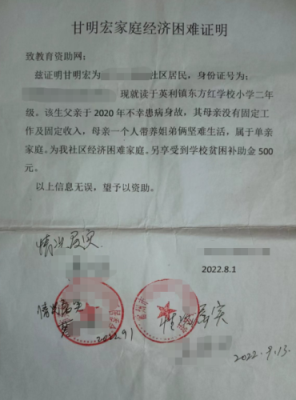 甘明宏家庭经济困难证明
致教育资助网：
兹证明甘明宏为 社区居民，身份证号为：
现就读于英利镇东方红学校小学二年
级。该生父亲于 2020 年不幸患病身故，其母亲没有固定工
作及固定收入，母亲一个人带养姐弟俩坚难生活，属于单亲
家庭。为我社区经济困难家庭。另享受到学校贫困补助金 500
元。
以上信息无误，望予以资助。
情况属实
2022.8.1
情况属实
2022.9.1
情况属实
2022.9.13